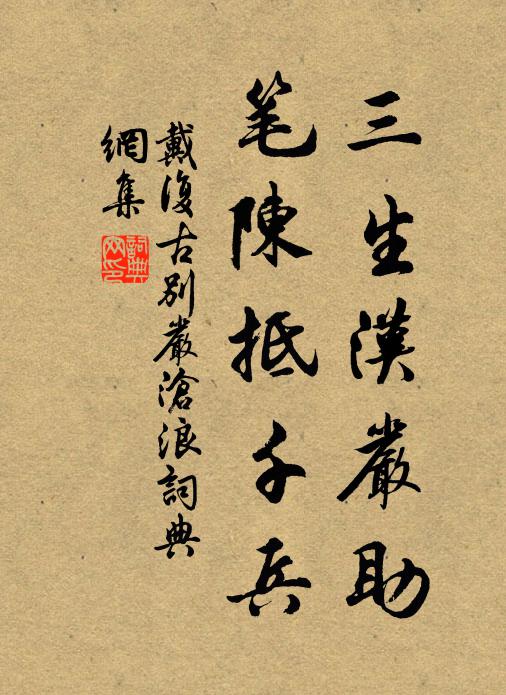 三生漢嚴助
笔陳抵千兵
戴復古别嚴滄浪詞典
網集
詞典
网印